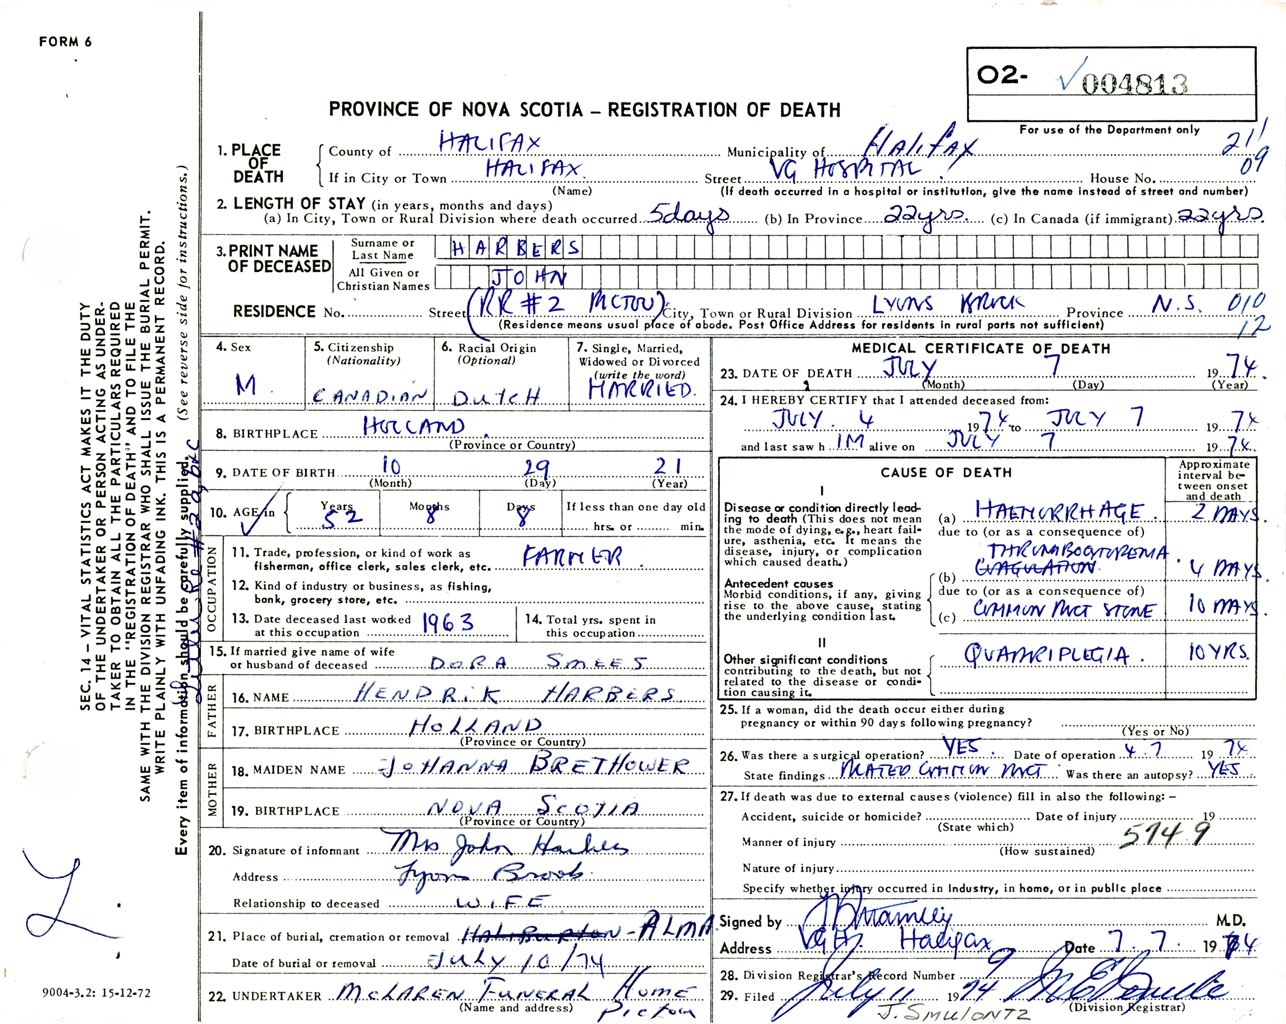 FORM 6
O2- ✓ 004813
For use of the Department only
PROVINCE OF NOVA SCOTIA – REGISTRATION OF DEATH
211
09
1. PLACE OF DEATH
County of HALIFAX Municipality of Halifax
If in City or Town HALIFAX Street VG HOSPITAL House No.
(Name) (If death occurred in a hospital or institution, give the name instead of street and number)
2. LENGTH OF STAY (in years, months and days)
(a) In City, Town or Rural Division where death occurred 5 days (b) In Province 22 yrs. (c) In Canada (if immigrant) 22 yrs
3. PRINT NAME OF DECEASED
Surname or Last Name HARBERS
All Given or Christian Names JOHN
RESIDENCE No. Street (RR #2 PICTOU) City, Town or Rural Division LYONS BROOK Province N.S. 010
12
(Residence means usual place of abode. Post Office Address for residents in rural parts not sufficient)
4. Sex M
5. Citizenship (Nationality) CANADIAN
6. Racial Origin (Optional) DUTCH
7. Single, Married, Widowed or Divorced (write the word) MARRIED.
8. BIRTHPLACE HOLLAND.
(Province or Country)
9. DATE OF BIRTH 10 29 21
(Month) (Day) (Year)
10. AGE in ✓ Years 52 Months 8 Days 8 If less than one day old hrs. or min.
OCCUPATION
11. Trade, profession, or kind of work as fisherman, office clerk, sales clerk, etc. FARMER.
12. Kind of industry or business, as fishing, bank, grocery store, etc.
13. Date deceased last worked at this occupation 1963
14. Total yrs. spent in this occupation
15. If married give name of wife or husband of deceased DORA SMEES
FATHER
16. NAME HENDRIK HARBERS
17. BIRTHPLACE HOLLAND
(Province or Country)
MOTHER
18. MAIDEN NAME JOHANNA BRETHOWER
19. BIRTHPLACE NOVA SCOTIA
(Province or Country)
20. Signature of informant Mrs John Harbers
Address Lyons Brook
Relationship to deceased WIFE
21. Place of burial, cremation or removal HALIBURTON - ALMA
Date of burial or removal July 10/74
22. UNDERTAKER McLAREN FUNERAL HOME
(Name and address) Pictou
MEDICAL CERTIFICATE OF DEATH
23. DATE OF DEATH JULY 7 1974.
(Month) (Day) (Year)
24. I HEREBY CERTIFY that I attended deceased from:
JULY. 4 1974 to JULY 7 1974
and last saw h IM alive on JULY 7 1974.
CAUSE OF DEATH
Approximate interval between onset and death
I
Disease or condition directly leading to death (This does not mean the mode of dying, e.g., heart failure, asthenia, etc. It means the disease, injury, or complication which caused death.)
(a) HAEMORRHAGE. 2 DAYS.
due to (or as a consequence of)
THROMBOCYTOPENIA
Antecedent causes
Morbid conditions, if any, giving rise to the above cause, stating the underlying condition last.
(b) COAGULATION 4 DAYS.
due to (or as a consequence of)
(c) COMMON DUCT STONE 10 DAYS.
II
Other significant conditions contributing to the death, but not related to the disease or condition causing it.
QUADRIPLEGIA. 10 YRS.
25. If a woman, did the death occur either during pregnancy or within 90 days following pregnancy?
(Yes or No)
26. Was there a surgical operation? YES. Date of operation 4.7 1974
State findings DILATED COMMON DUCT Was there an autopsy? YES
27. If death was due to external causes (violence) fill in also the following: –
Accident, suicide or homicide? Date of injury 19
(State which)
Manner of injury 5749
(How sustained)
Nature of injury
Specify whether injury occurred in Industry, in home, or in public place
Signed by M.D.
Address VGH. Halifax Date 7.7. 1974
28. Division Registrar's Record Number 9
29. Filed July 11 1974
(Division Registrar)
SEC. 14 – VITAL STATISTICS ACT MAKES IT THE DUTY
OF THE UNDERTAKER OR PERSON ACTING AS UNDER-
TAKER TO OBTAIN ALL THE PARTICULARS REQUIRED
IN THE "REGISTRATION OF DEATH" AND TO FILE THE
SAME WITH THE DIVISION REGISTRAR WHO SHALL ISSUE THE BURIAL PERMIT.
WRITE PLAINLY WITH UNFADING INK. THIS IS A PERMANENT RECORD.
Every item of information should be carefully supplied. (See reverse side for instructions.)
9004-3.2: 15-12-72